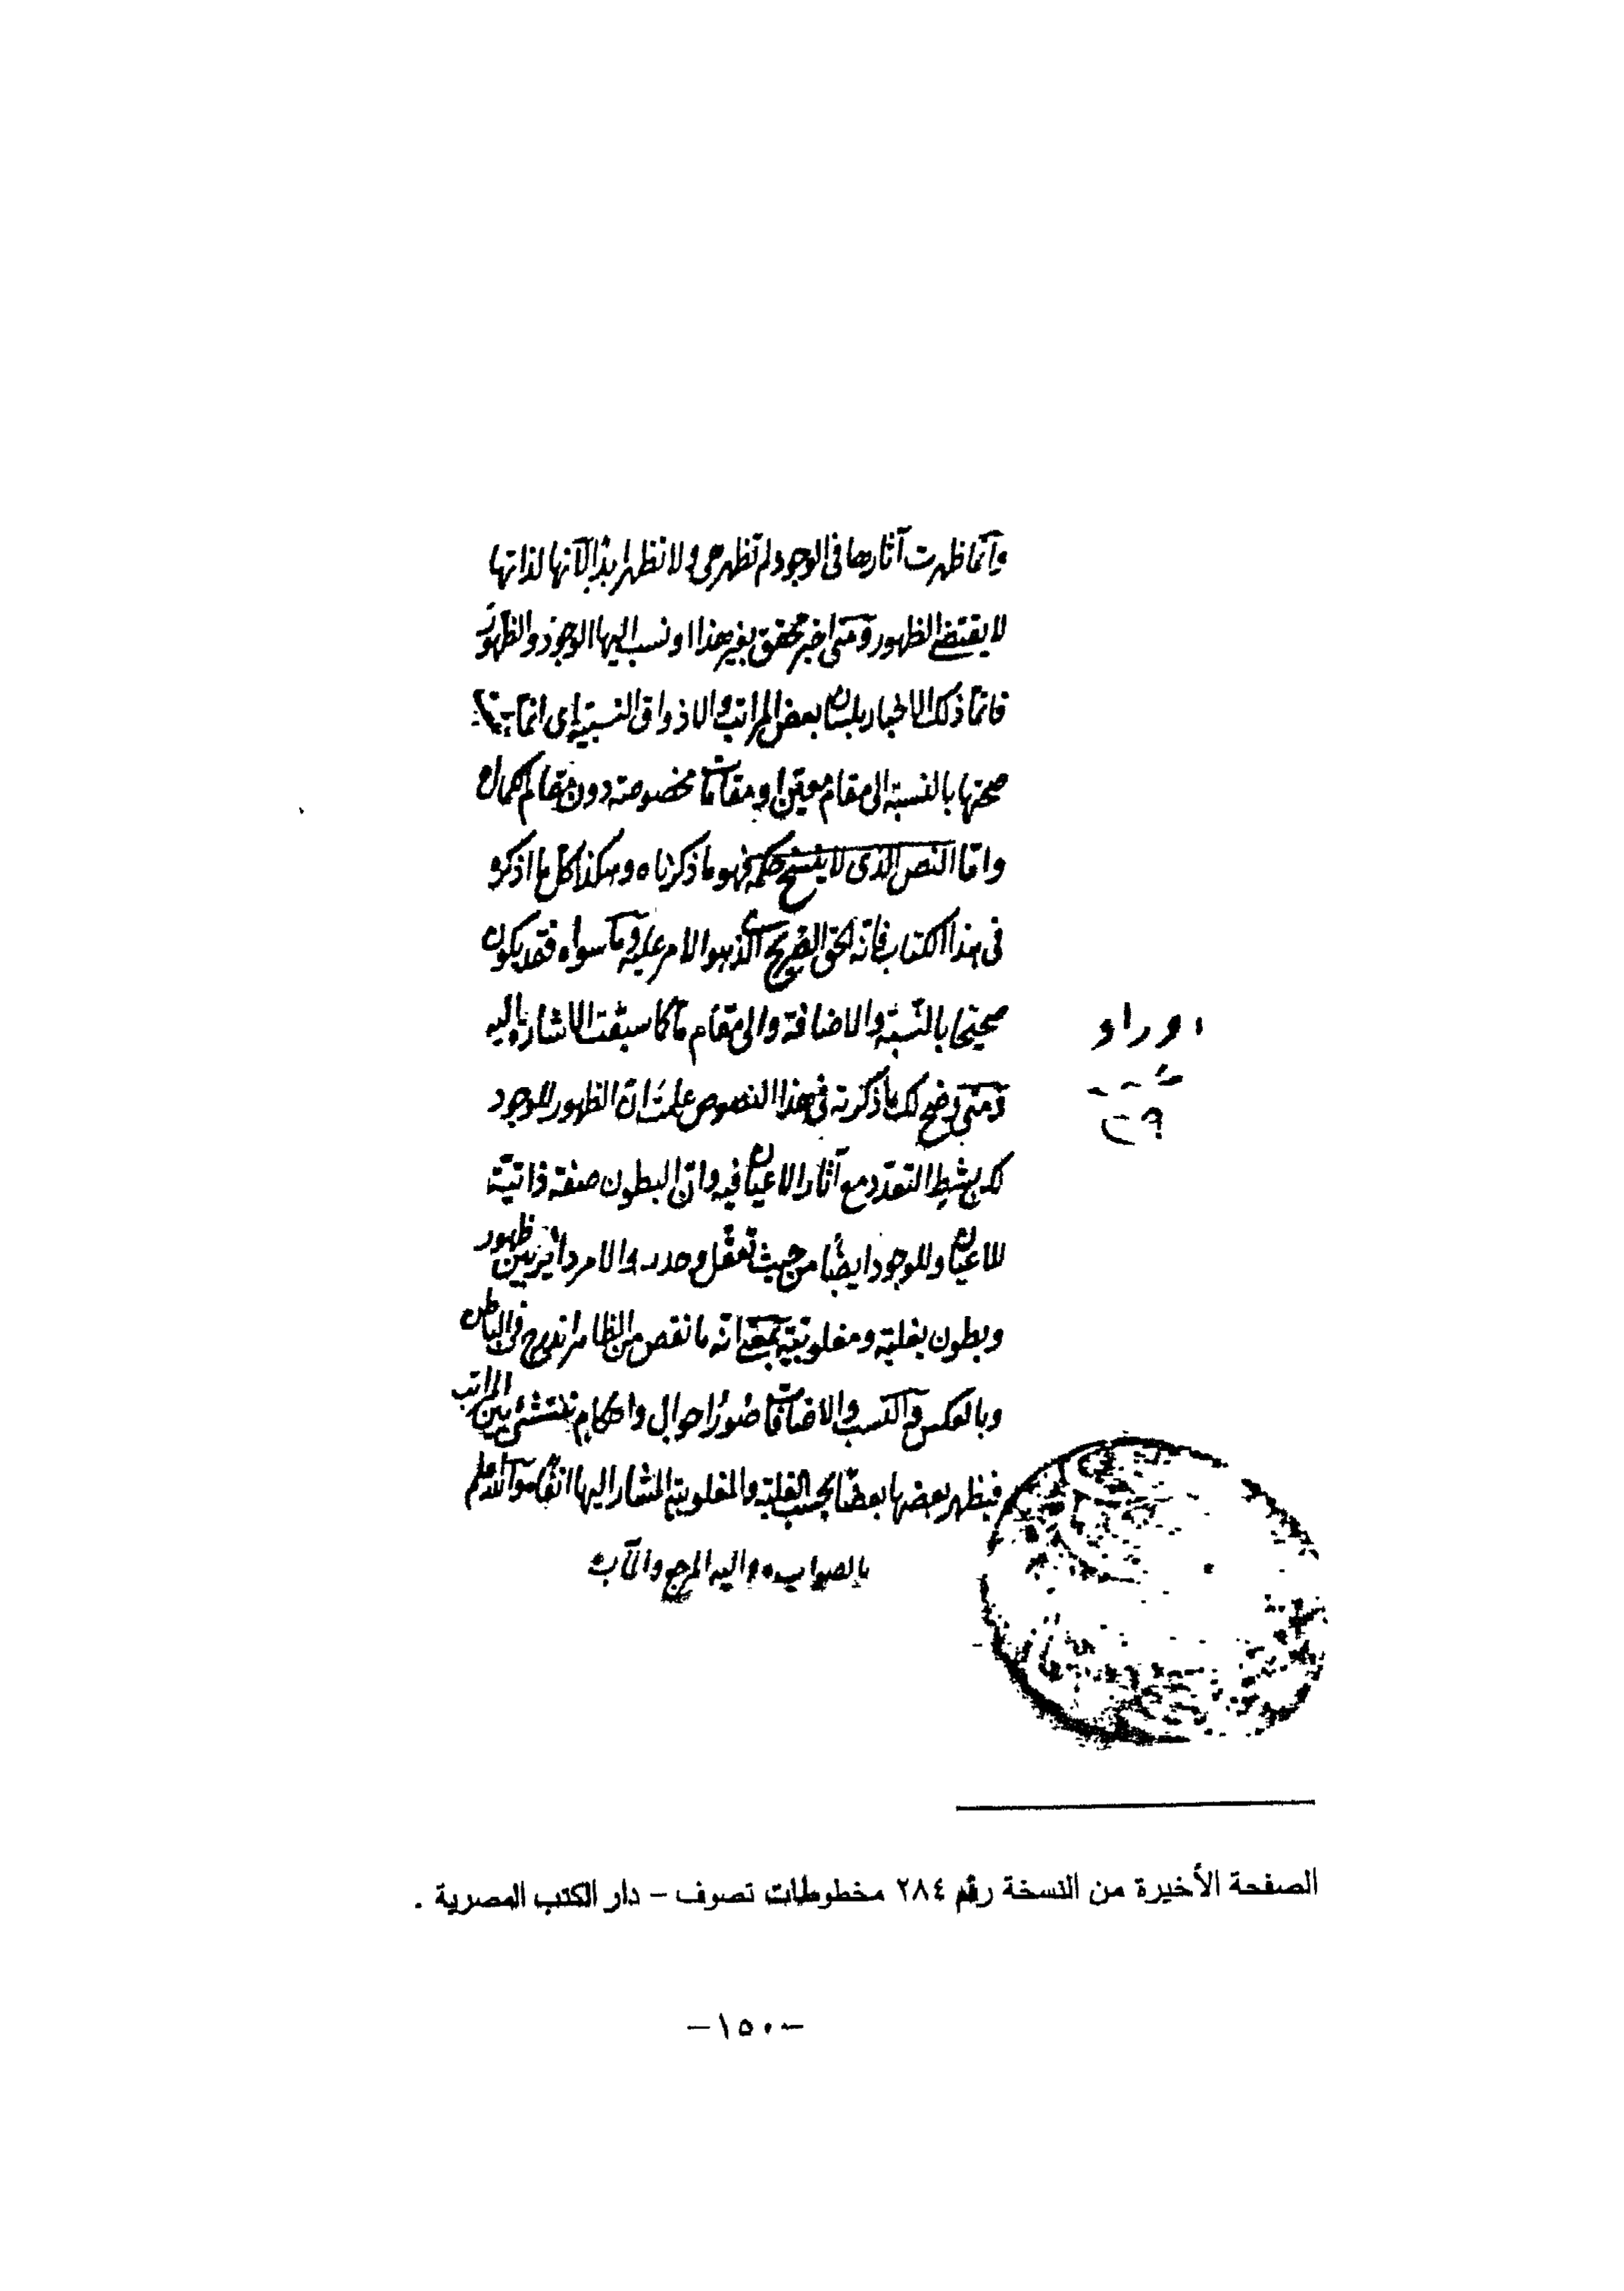 وانما ظهرت آثارها فى الوجود لم تظهر هى ولا تظهر ابدا لانها لذاتها
لا يقتضى الظهور ومتى اخبر محقق بغير هذا او نسب اليها الوجود والظهور
فانما ذلك الاخبار بلسان بعض المراتب والاذواق النسبية اى انما
صحتها بالنسبة الى مقام معين او مقامات مخصوصة دون مقام الكمال
واما النص الذى لا ينسخ حكمه فهو ما ذكرناه وهكذا كل ما اذكره
فى هذا الكتاب فانه الحق الصريح الذى هو الامر عليه وما سواه فقد يكون
صحيحا بالنسبة والاضافة والى مقام ما كما سبقت الاشارة اليه
ومتى وضح لك ما ذكرته فى هذا النصوص علمت ان الظهور للوجود
لكن بشرط التعدد مع آثار الاعيان فيه وان البطون صفة ذاتية
للاعيان وللوجود ايضا من حيث تعقل وحدته والامر دائر بين ظهور
وبطون بغلبة ومغلوبية بمعنى انه ما نقص من الظاهر اندرج فى الباطن
وبالعكس والنسب والاضافات صور احوال واحكام تنتشئ بين المراتب
فيظهر بعضها بعضا بحسب الغلبة والمغلوبية المشار اليها انفا والله اعلم
بالصواب واليه المرجع والمآب
اوراد
٢٩
الصفحة الأخيرة من النسخة رقم ٢٨٤ مخطوطات تصوف – دار الكتب المصرية .
–١٥٠–